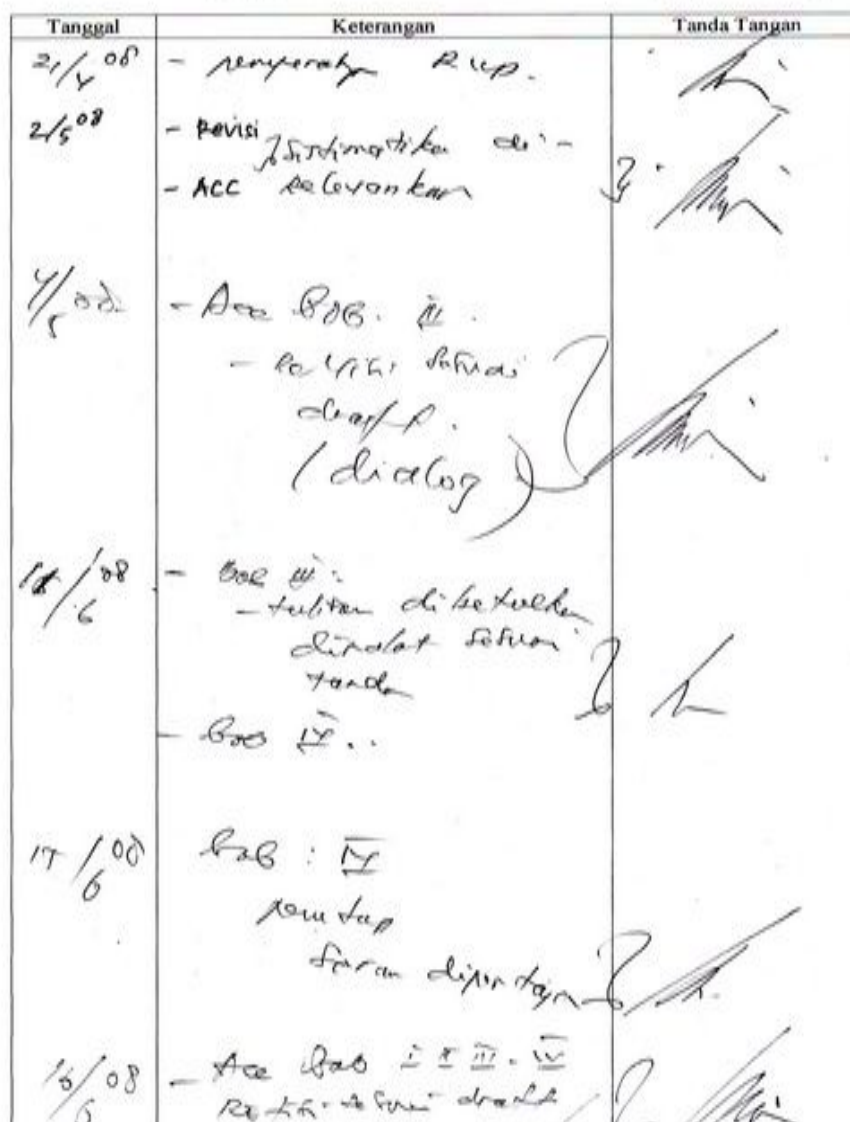 Tanggal Keterangan Tanda Tangan
21/4 08 -
2/5 08 - Revisi
sistimatika di -
- ACC relevankan
4/5 08 - Acc Bab. II.
- revisi sesuai
draft.
(dialog)
/6 08 - Bab III:
- tulisan dibetulkan
diralat sesuai
tanda
- Bab IV..
17/6 08 bab : IV
penutup
saran dipertajam
/6 08 - Acc Bab I II III. IV
sesuai draft